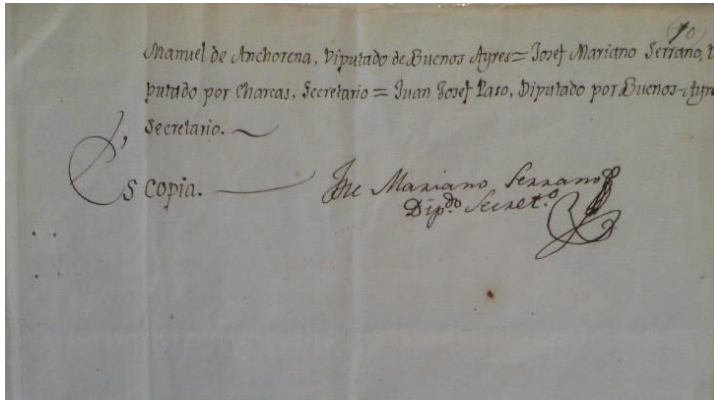 (10)
Manuel de Anchorena, Diputado de Buenos Ayres= Josef Mariano Serrano, D
putado por Charcas, Secretario = Juan Josef Paso, Diputado por Buenos-Ayre
Secretario.
Es copia.
Jse Mariano Serrano
Dip.do Secret.o